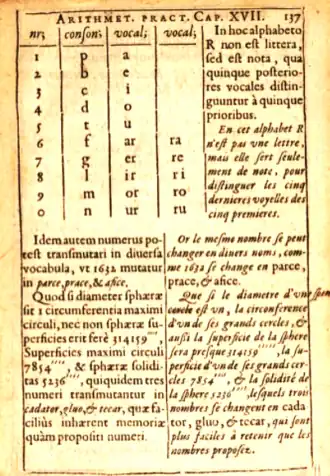 ARITHMET. PRACT. CAP. XVII. 137
nr; conson; vocal; vocal;
1 p a
2 b e
3 c i
4 d o
5 t u
6 f ar ra
7 g er re
8 l ir ri
9 m or ro
0 n ur ru
In hoc alphabeto
R non est littera,
sed est nota, qua
quinque posterio-
res vocales distin-
guuntur à quinque
prioribus.
En cet alphabet R
n'est pas vne lettre,
mais elle sert seule-
ment de note, pour
distinguer les cinq
dernieres voyelles des
cinq premieres.
Idem autem numerus po-
test transmutari in diuersa
vocabula, vt 1632 mutatur
in parce, prace, & afice.
Quod si diameter sphæræ
sit 1 circumferentia maximi
circuli, nec non sphæræ su-
perficies erit ferè 314159'''''
Superficies maximi circuli
7854'''', & sphæræ solidi-
tas 5236'''', quiquidem tres
numeri transmutantur in
cadator, gluo, & tecar, quæ fa-
ciliùs inhærent memoriæ
quàm propositi numeri.
Or le mesme nombre se peut
changer en diuers noms, com-
me 1632 se change en parce,
prace, & afice.
Que si le diametre d'vne
est vn, la circonference
d'vn de ses grands cercles, &
aussi la superficie de la sphere
sera presque 314159''''', la su-
perficie d'vn de ses grands cer-
cles 7854'''', & la solidité de
la sphere 5236'''', lesquels trois
nombres se changent en cada
tor, gluo, & tecar, qui sont
plus faciles à retenir que les
nombres proposez.